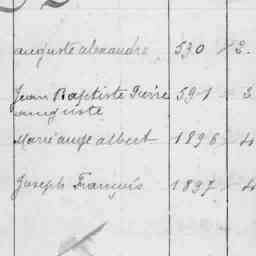 auguste alexandre 530 2
Jean Baptiste Pierre 591 3
auguste
Marie ange albert 1896 4
Joseph François 1897 4